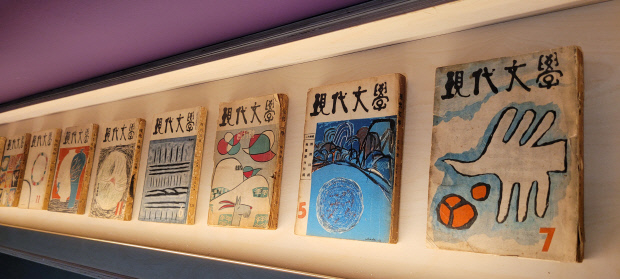 現代文學
現代文學
現代文學
11
現代文學
現代文學
現代文學
5
現代文學
7